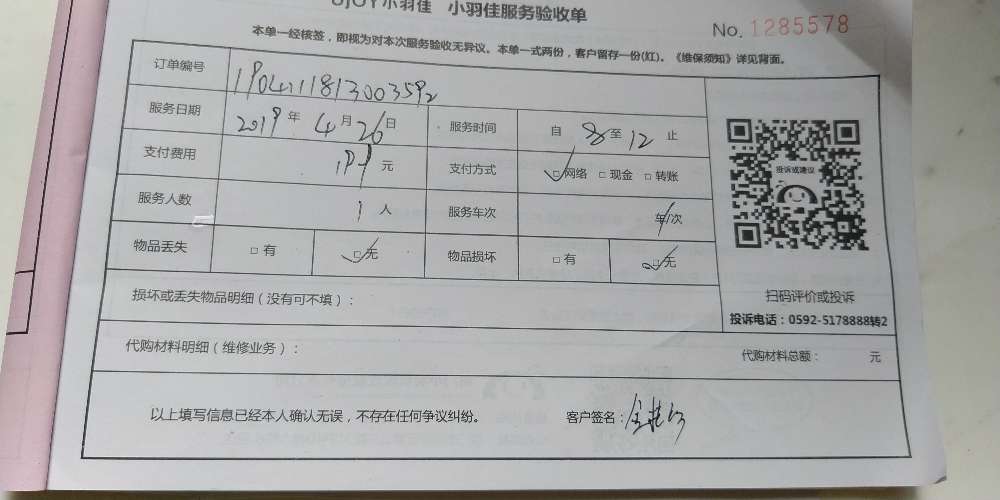 小羽佳 小羽佳服务验收单
No. 1285578
本单一经核签，即视为对本次服务验收无异议。本单一式两份，客户留存一份(红)。《维保须知》详见背面。
订单编号
服务日期 2019 年 4 月 26 日 服务时间 自 8 至 12 止
支付费用 元 支付方式 □网络 □现金 □转账
服务人数 1 人 服务车次 车/次
物品丢失 □有 □无 物品损坏 □有 □无
投诉或建议
扫码评价或投诉
投诉电话：0592-5178888转2
损坏或丢失物品明细（没有可不填）：
代购材料明细（维修业务）： 代购材料总额： 元
以上填写信息已经本人确认无误，不存在任何争议纠纷。 客户签名：